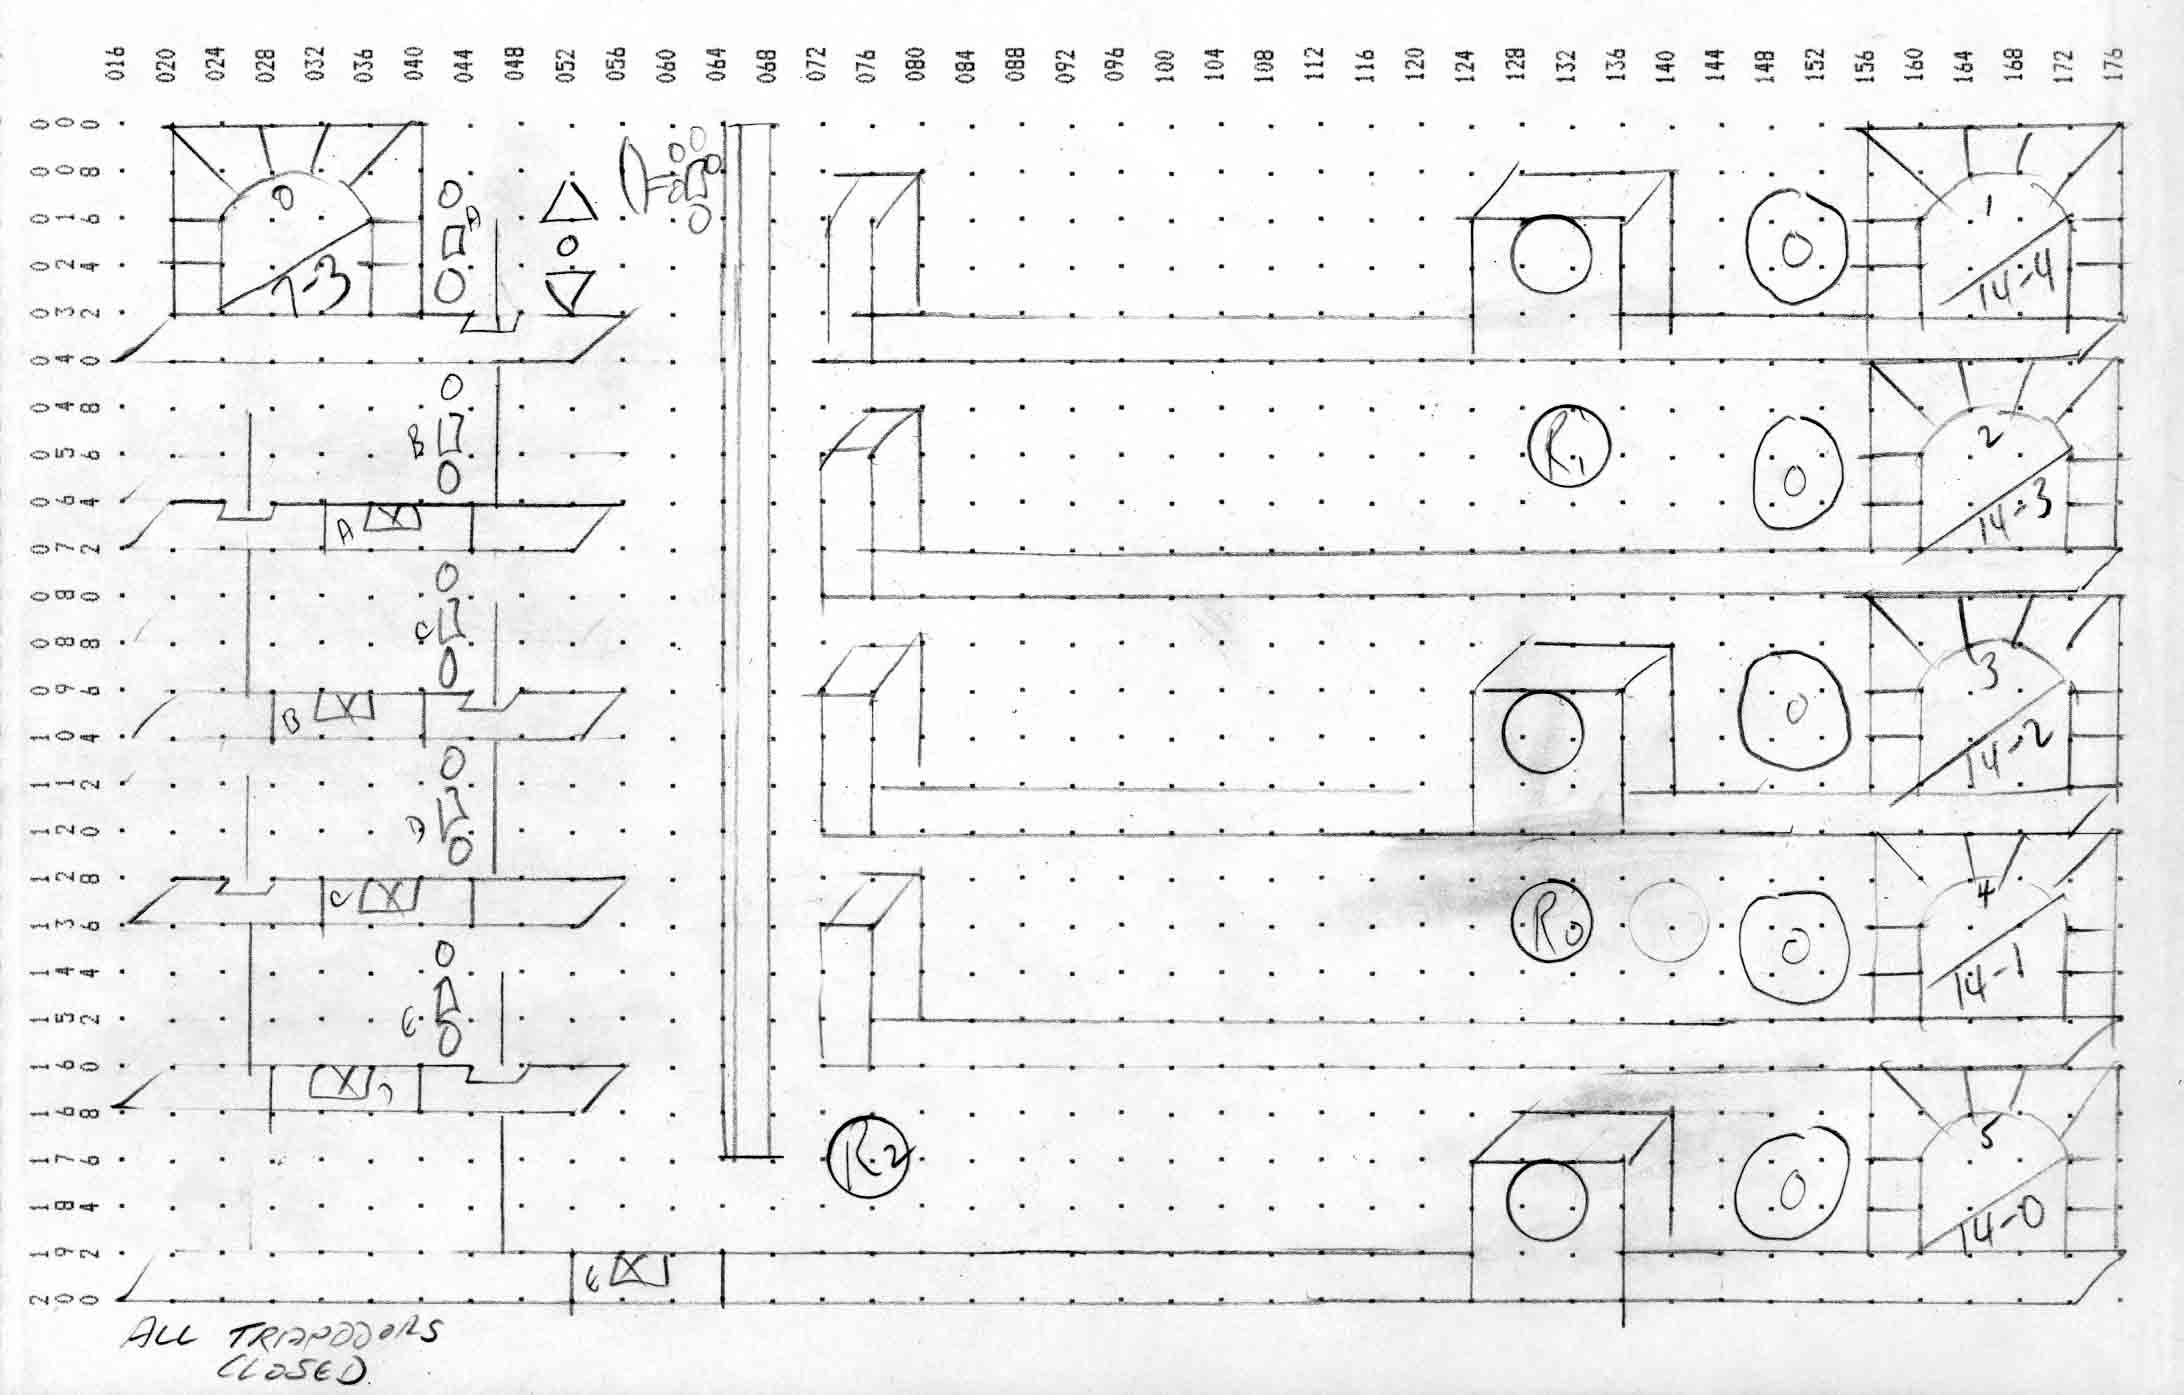 016 020 024 028 032 036 040 044 048 052 056 060 064 068 072 076 080 084 088 092 096 100 104 108 112 116 120 124 128 132 136 140 144 148 152 156 160 164 168 172 176
000
008
016
024
032
040
048
056
064
072
080
088
096
104
112
120
128
136
144
152
160
168
176
184
192
200
0
7-3
A
1
14-4
B
R1
2
14-3
A
C
3
14-2
B
D
4
14-1
C
R0
E
D
R2
5
14-0
E
ALL TRAPDOORS
CLOSED.